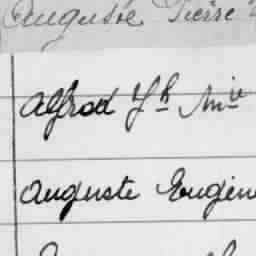 Auguste Pierre
Alfred Jh Mie
Auguste Eugèn